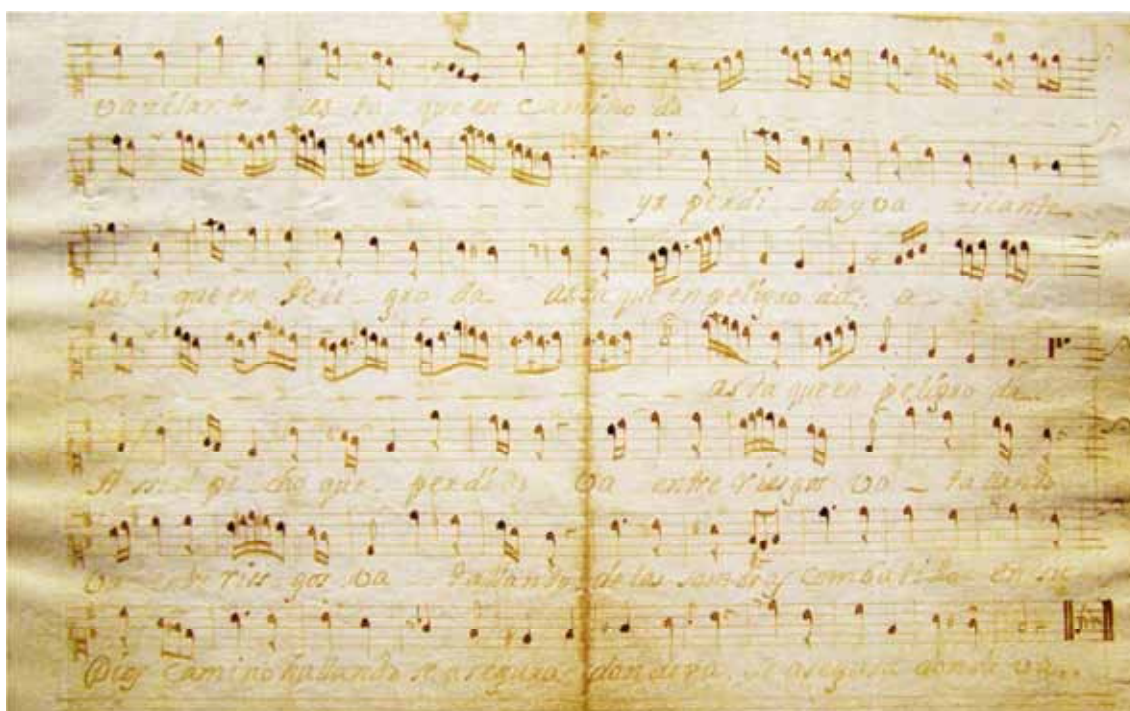 vazilante asta que en camino da
ya perdido y va zilante
asta que en peligro da asta que en peligro da a
asta que en peligro da
que perdido va entre riesgos va tallando
entre riesgos va tallando de las combatido en su
Dios camino hallando se asegura donde va se asegura donde va
fin